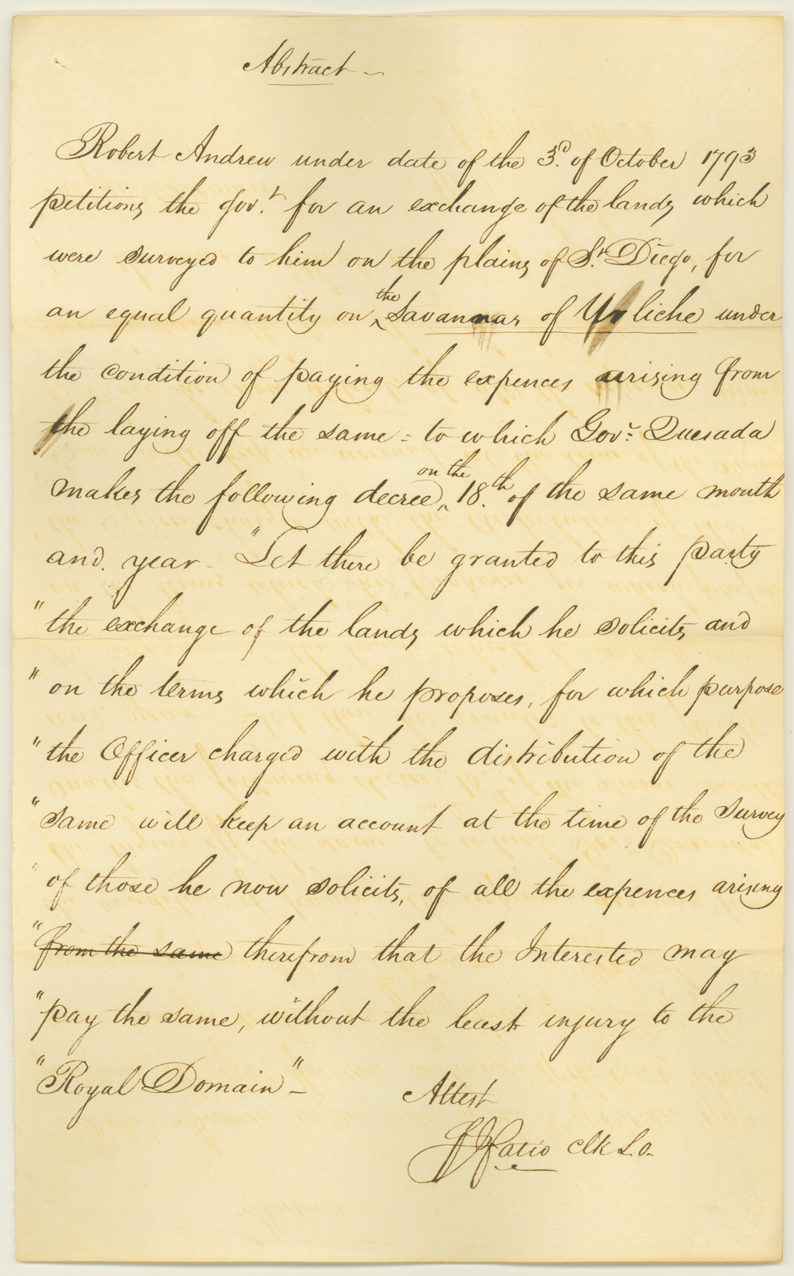 Abstract
Robert Andrew under date of the 3d. of October 1793
petitions the Gov.r for an exchange of the lands which
were surveyed to him on the plains of Sn. Diego, for
an equal quantity on the Savannas of under
the condition of paying the expences arising from
the laying off the same = to which Gov.r Quesada
makes the following decree on the 18.th of the same month
and year - "Let there be granted to this party
"the exchange of the lands which he solicits and
"on the terms which he proposes, for which purpose
"the Officer charged with the distribution of the
"same will keep an account at the time of the survey
"of those he now solicits, of all the expences arising
"from the same therefrom that the Interested may
"pay the same, without the least injury to the
"Royal Domain" -
Attest
Fatio Clk L.O.